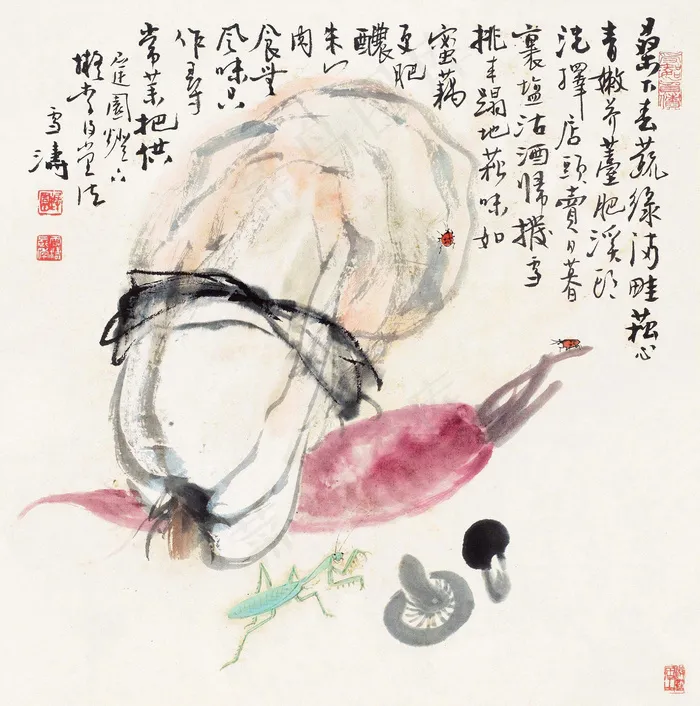 桑下春蔬綠滿畦菘心
青嫩芥薹肥溪頭
洗擇店頭賣日暮
裹鹽沽酒歸撥雪
挑來蹋地菘味如
蜜藕
更肥
醲
朱门
肉
食無
風味只
作尋
常菜把供
園燈下
擬堂法
雪濤